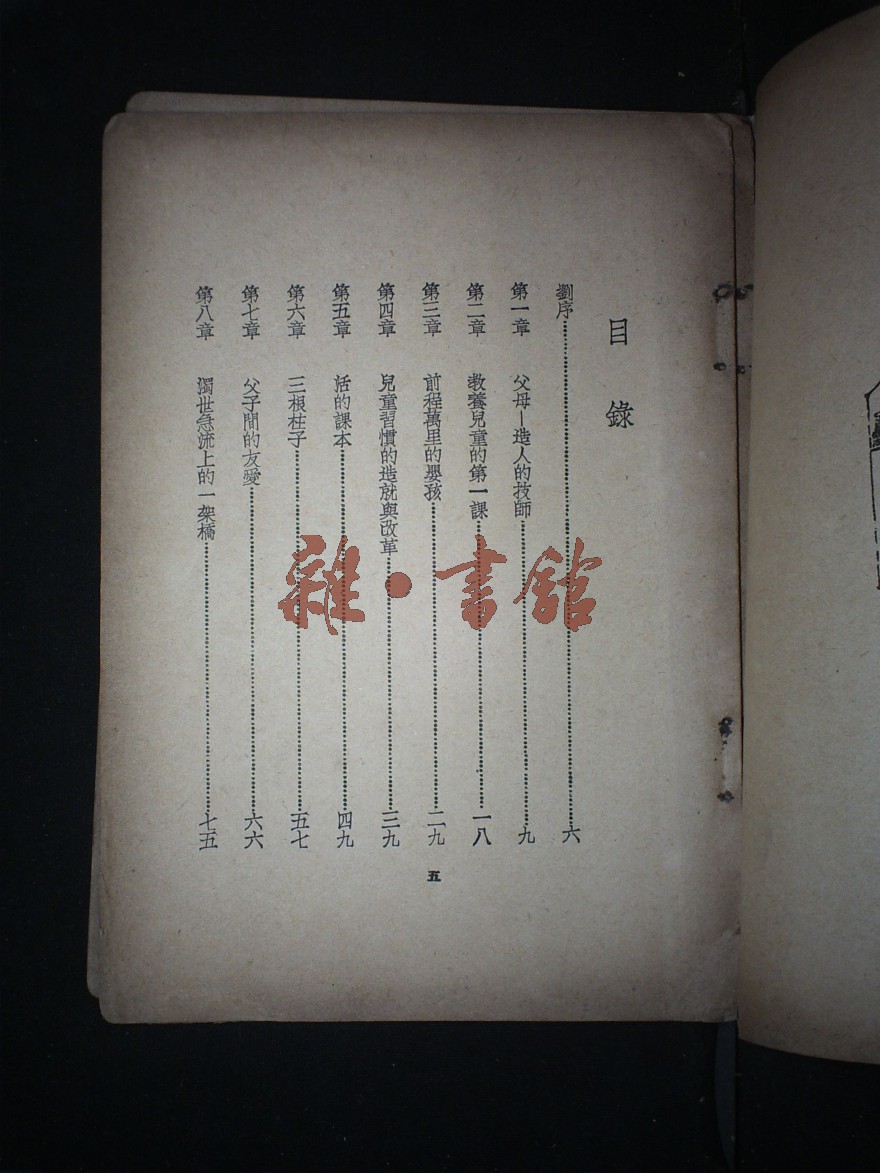 目錄
劉序……六
第一章 父母—造人的技師……九
第二章 教養兒童的第一課……一八
第三章 前程萬里的嬰孩……二九
第四章 兒童習慣的造就與改革……三九
第五章 活的課本……四九
第六章 三根柱子……五七
第七章 父子間的友愛……六六
第八章 濁世急流上的一架橋……七五
五
雜·書館